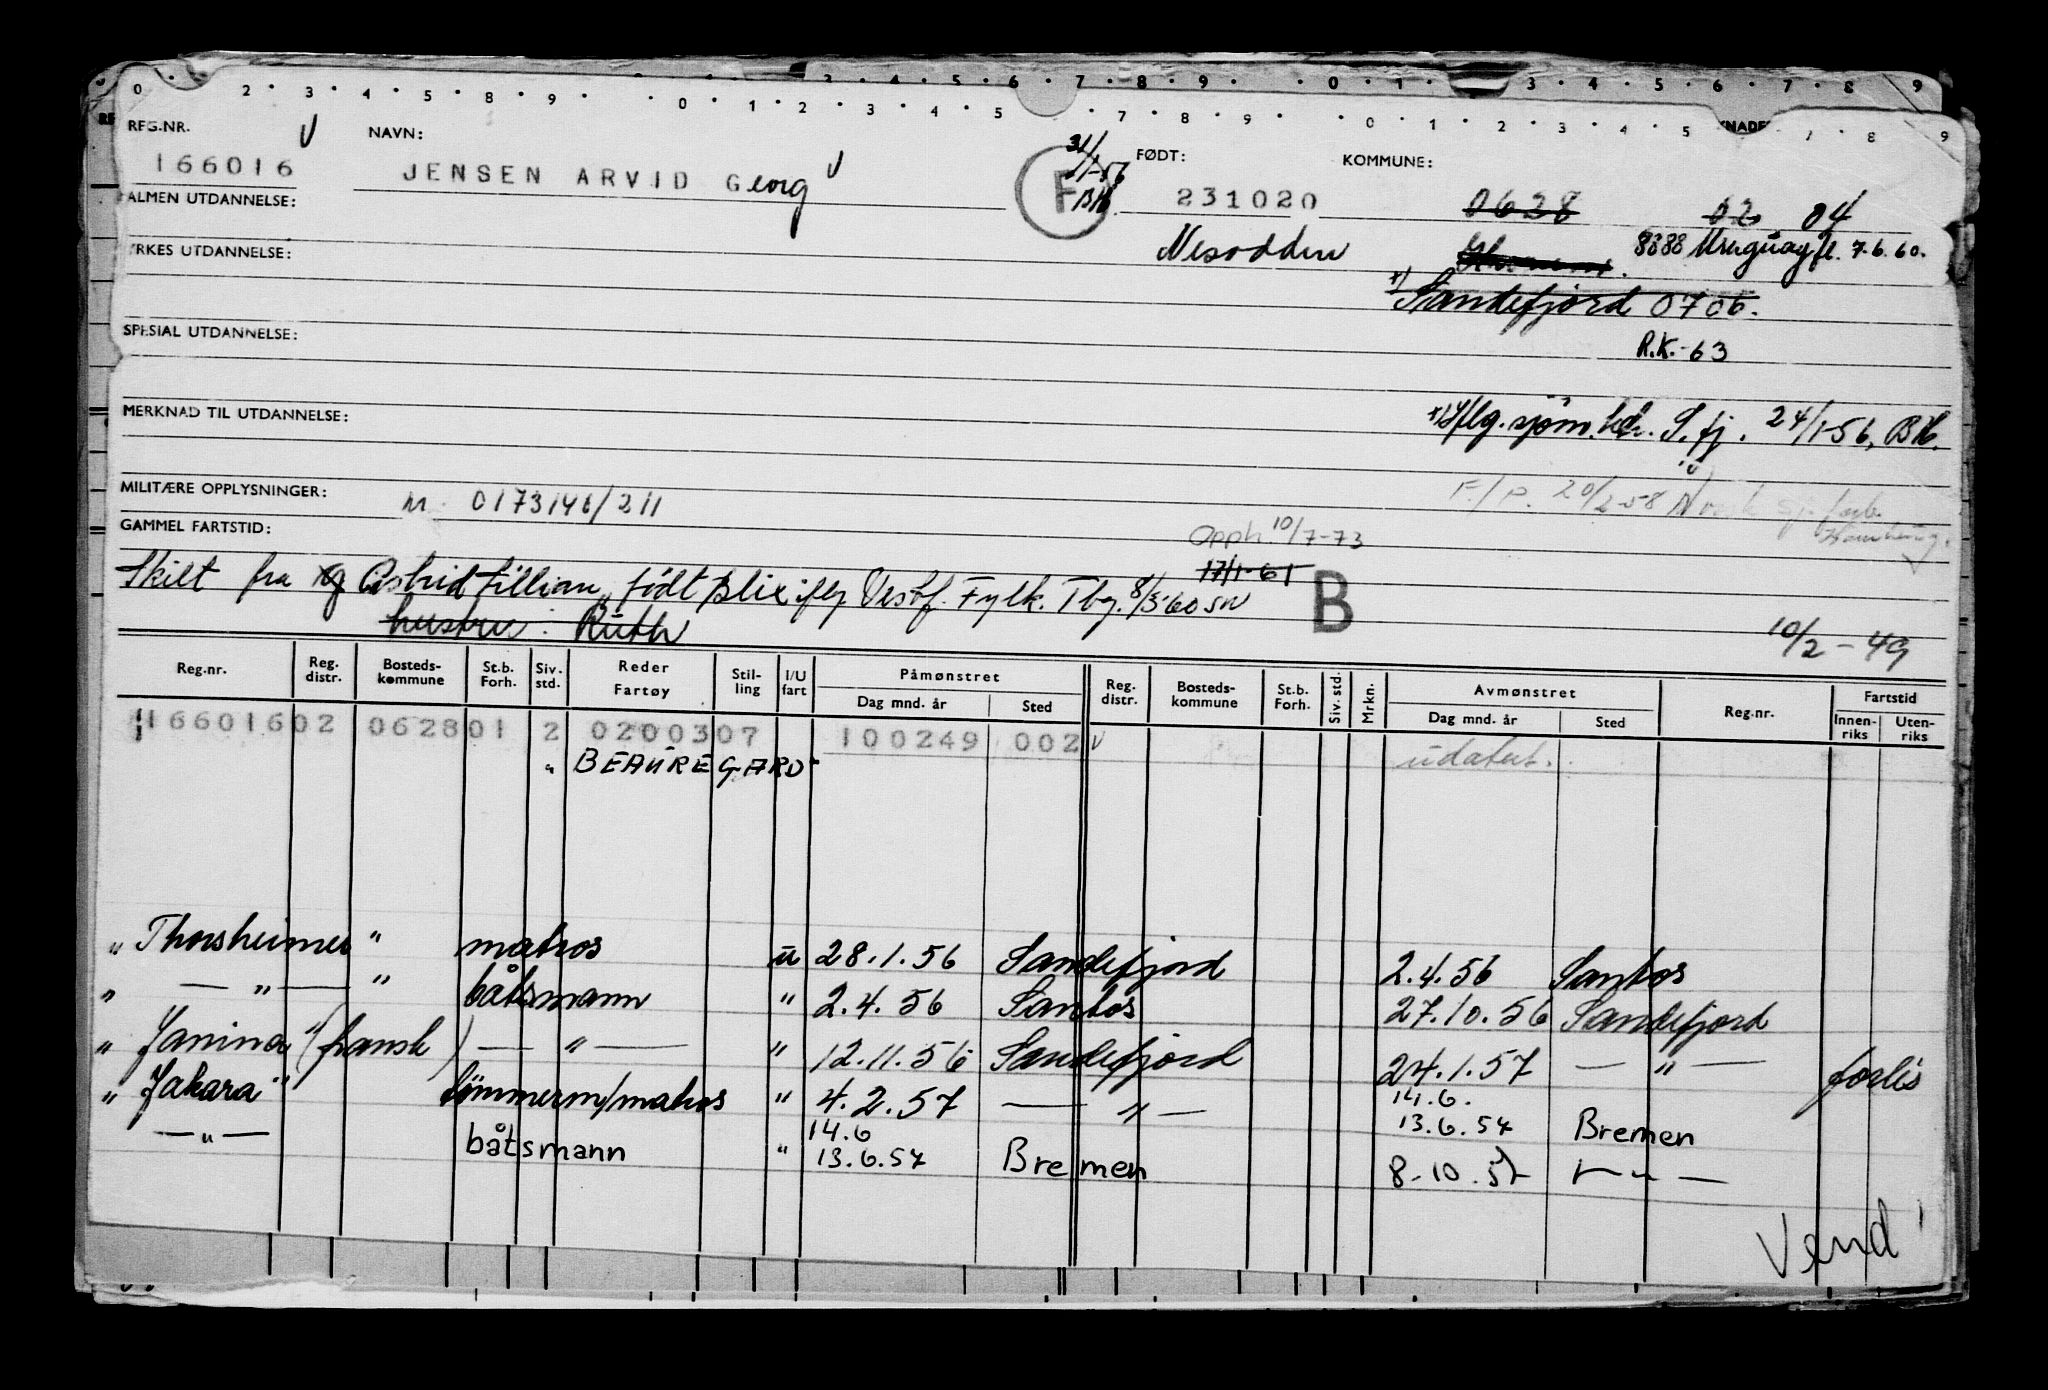 0 2 · 3 · 4 · 5 · 8 · 9 · · 0 · 1 · 2 · 3 · 4 · 5 · 7 · 8 · 9 · · 0 · 1 · 2 · 3 · 4 · 5 8 · 9
REG.NR. V NAVN: 31/1-56 BH. FØDT: KOMMUNE:
166016 JENSEN ARVID Georg V F 231020 0628 02 04
ALMEN UTDANNELSE: Nesodden 8888 Uruguay fl. 7.6.60.
YRKES UTDANNELSE: +) Sandefjord 0706.
SPESIAL UTDANNELSE: R.K.-63
MERKNAD TIL UTDANNELSE: sjøm. S.fj. 24/1-56, BH.
MILITÆRE OPPLYSNINGER: nr. 0173146/211 F./P. 20/2-58
GAMMEL FARTSTID: Opph. 10/7-73
17/1-61
Skilt fra Astrid Lillian, født Blix ifly Vestf. Fylk. Tbg. 8/3-60 SN B
hustru: Ruth 10/2-49
Reg.nr. Reg. distr. Bosteds-kommune St.b. Forh. Siv. std. Reder Fartøy Stil-ling I/U fart Påmønstret Dag mnd. år Sted Reg. distr. Bosteds-kommune St.b. Forh. Siv. std. Mrkn. Avmønstret Dag mnd. år Sted Reg.nr. Fartstid Innen-riks Uten-riks
16601602 062801 2 0200307 100249 002 V udatert.
" BEAUREGARD
" Thorsheimer " matros u 28.1.56 Sandefjord 2.4.56 Santos
" — " — " båtsmann " 2.4.56 Santos 27.10.56 Sandefjord
" Janina" (fransk) — " — " 12.11.56 Sandefjord 24.1.57 — " — forlis
" Jakara" tømmerm/matros " 4.2.57 — " — 14.6. 13.6.57 Bremen
— " — båtsmann " 14.6 13.6.57 Bremen 8-10.57 — " —
Vend!